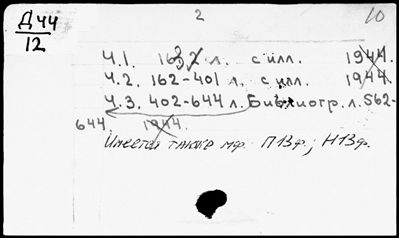 Д44 2 10
12
Ч.1. л. с илл. 1944.
Ч.2. 162-401 л. с илл. 1944.
Ч.3. 402-644 л. Библиогр. л. 562-
644. 1944.
Имеется также мф. П13ф.; Н13ф.